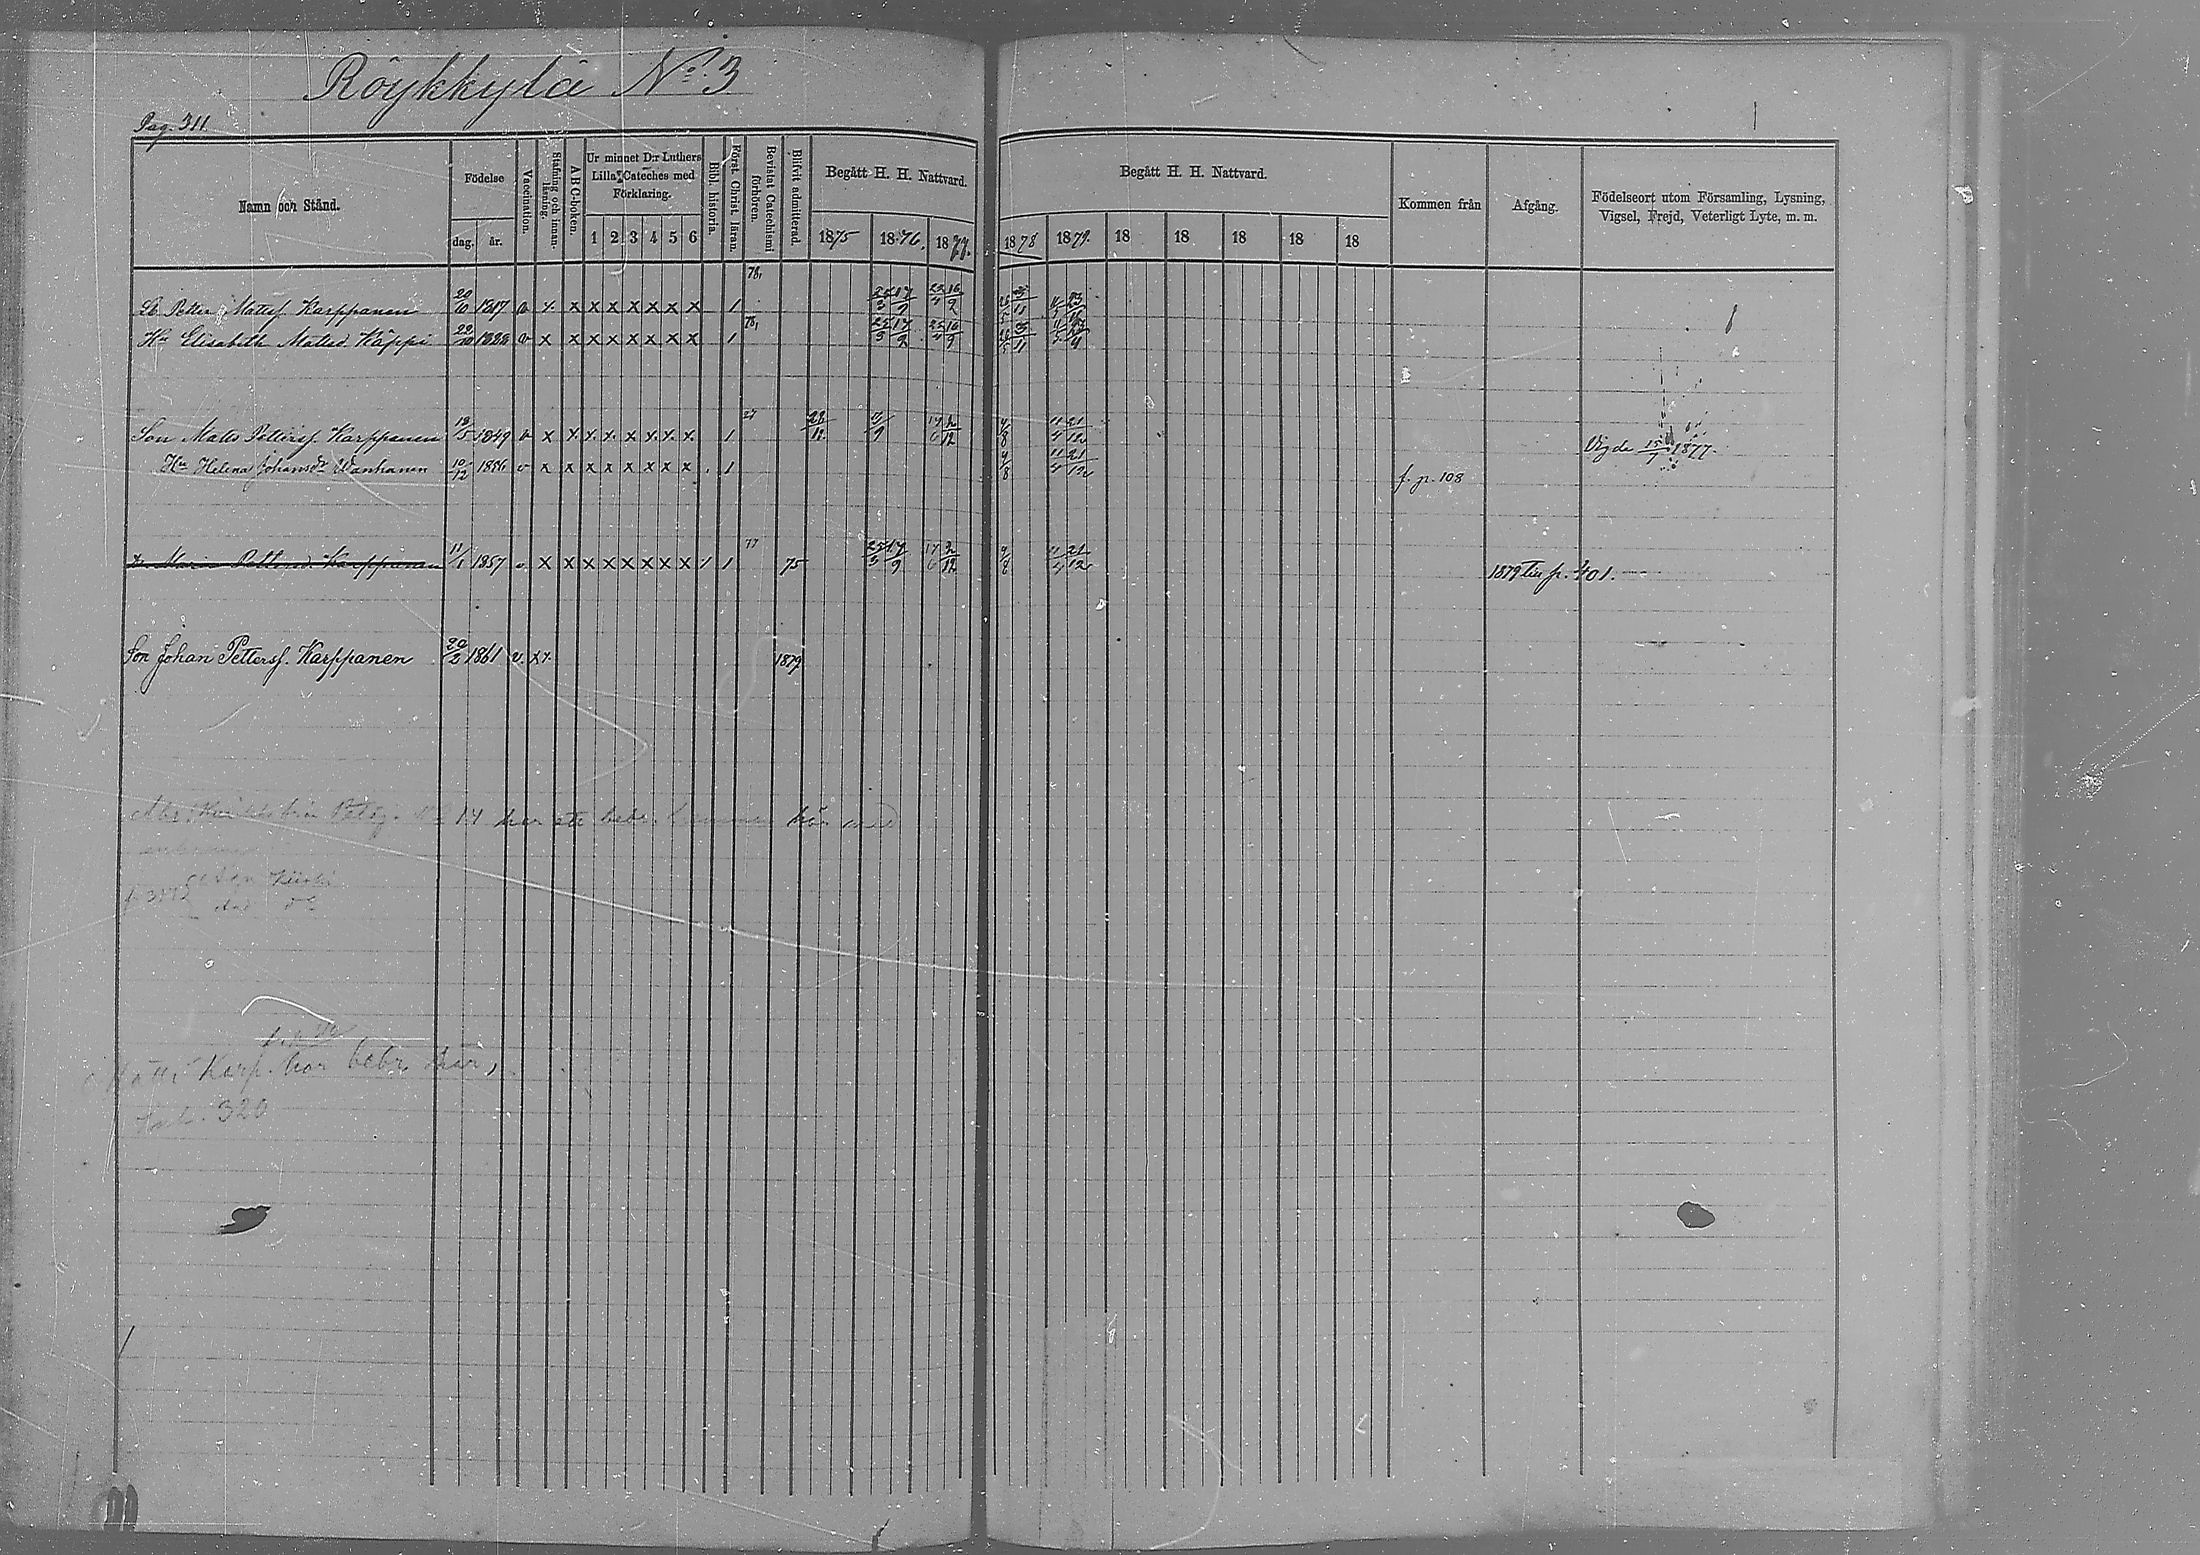 Röykkylä No. 3
Pag. 311.
Namn och Stånd.
Födelse
dag. år.
Vaccination.
Stafning och innanläsning.
ABC-boken.
Ur minnet D:r Luthers
Lilla Cateches med
Förklaring.
1 2 3 4 5 6
Bibl. historia.
Först. Christ. läran.
Bevistat Catechismi förhören.
Blifvit admitterad.
Begått H. H. Nattvard.
1875 1876. 1877.
Begått H. H. Nattvard.
1878 1879. 18 18 18 18 18
Kommen från
Afgång.
Födelseort utom Församling, Lysning,
Vigsel, Frejd, Veterligt Lyte, m. m.
78,
Petter Mattss. Karppanen 20/10 1817 v x x x x x x x x 1 25/3 17/9 23/4 16/9
Hu Elisabeth Matsd. Käppi 1828 v x x x x x x x x 1 78, 25/3 17/9 25/4 16/9
Son Matts Petterss. Karppanen 1849 v x x x x x x x x 1 27 17/6 2/12 4/8 11/4 21/12
Hu Helena Johansdr Wanhanen 10/12 1856 v x x x x x x x x 1 4/8 11/4 21/12 f. p. 108
Vigde 15/7 1877.
Dr Maria Pettersd. Karppanen 11/1 1857 v x x x x x x x x 1 1 77 75 25/3 17/9 17/6 2/12 4/8 11/4 21/12 1879 till p. 401.
Son Johan Petterss. Karppanen 20/2 1861 v. x x. 1879
Karp. har bebr. här,
320